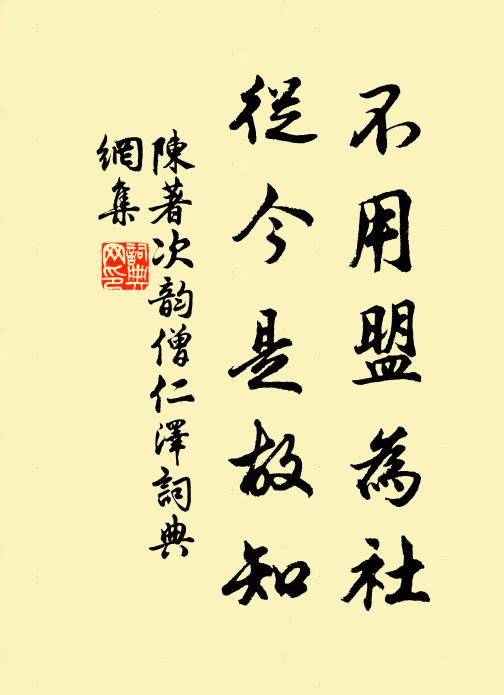 不用盟為社
從今是故知
陳著次韵僧仁澤詞典
網集
詞典
网印